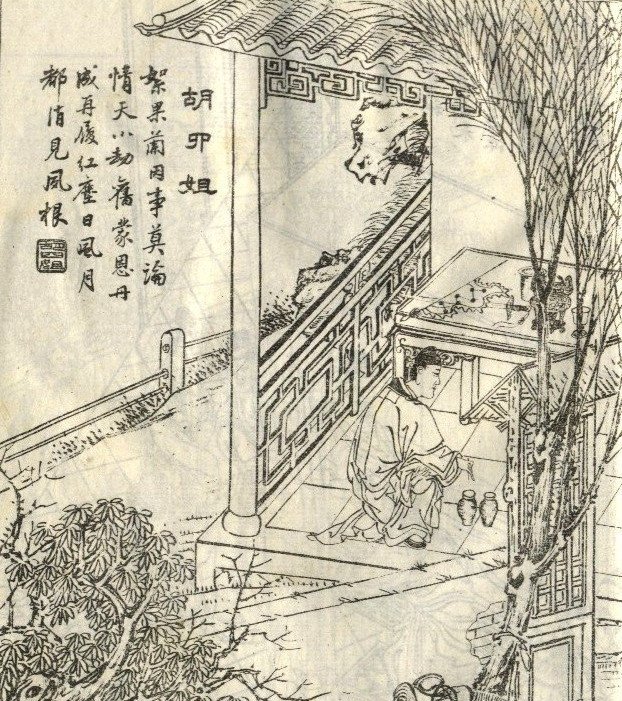 胡四姐
絮果蘭因事莫論
情天小劫舊蒙恩丹
成再履紅塵日風月
都消見夙根